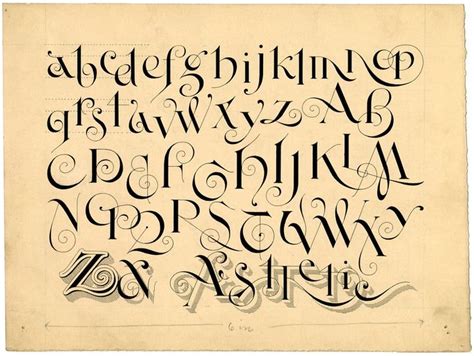 abcdefghijklmnop
qrstuvwxyzAB
CDEFGHIJKLM
NOPQRSTUVWXY
Z& Æsthetic